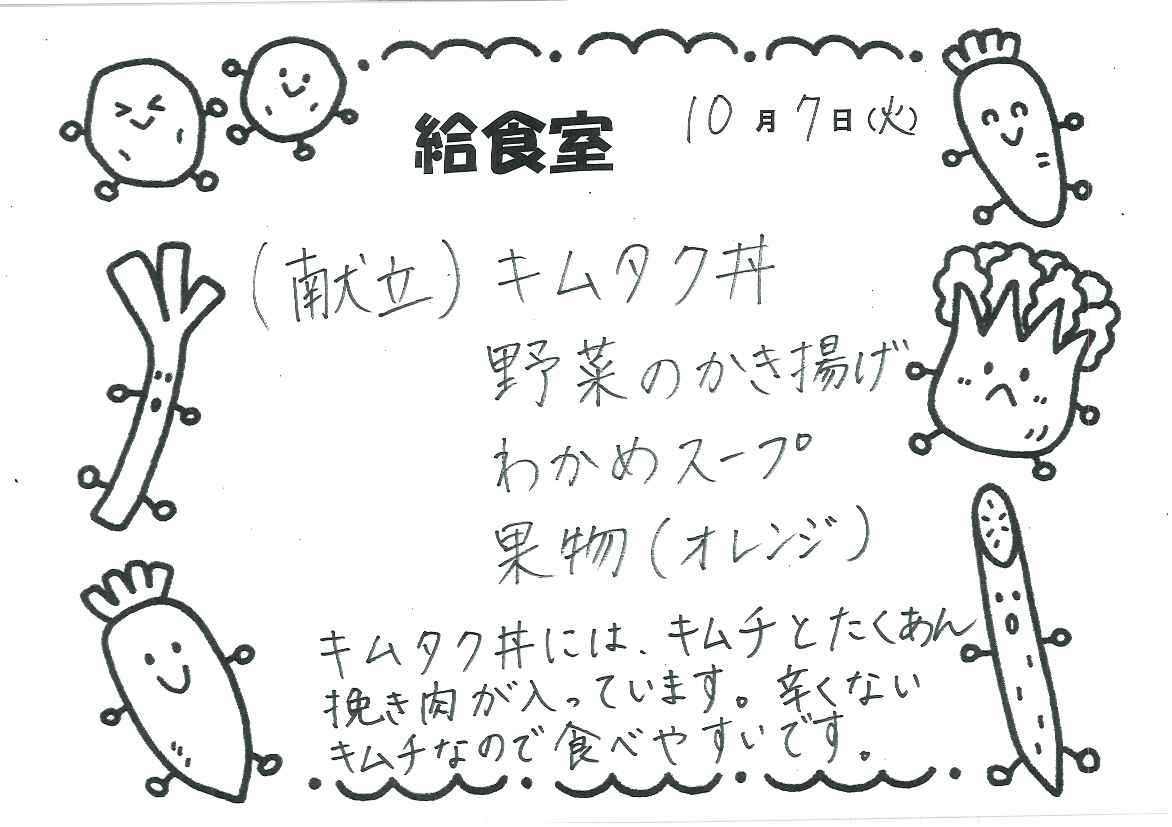 給食室 10月7日(火)
(献立) キムタク丼
野菜のかき揚げ
わかめスープ
果物(オレンジ)
キムタク丼には、キムチとたくあん
挽き肉が入っています。辛くない
キムチなので食べやすいです。